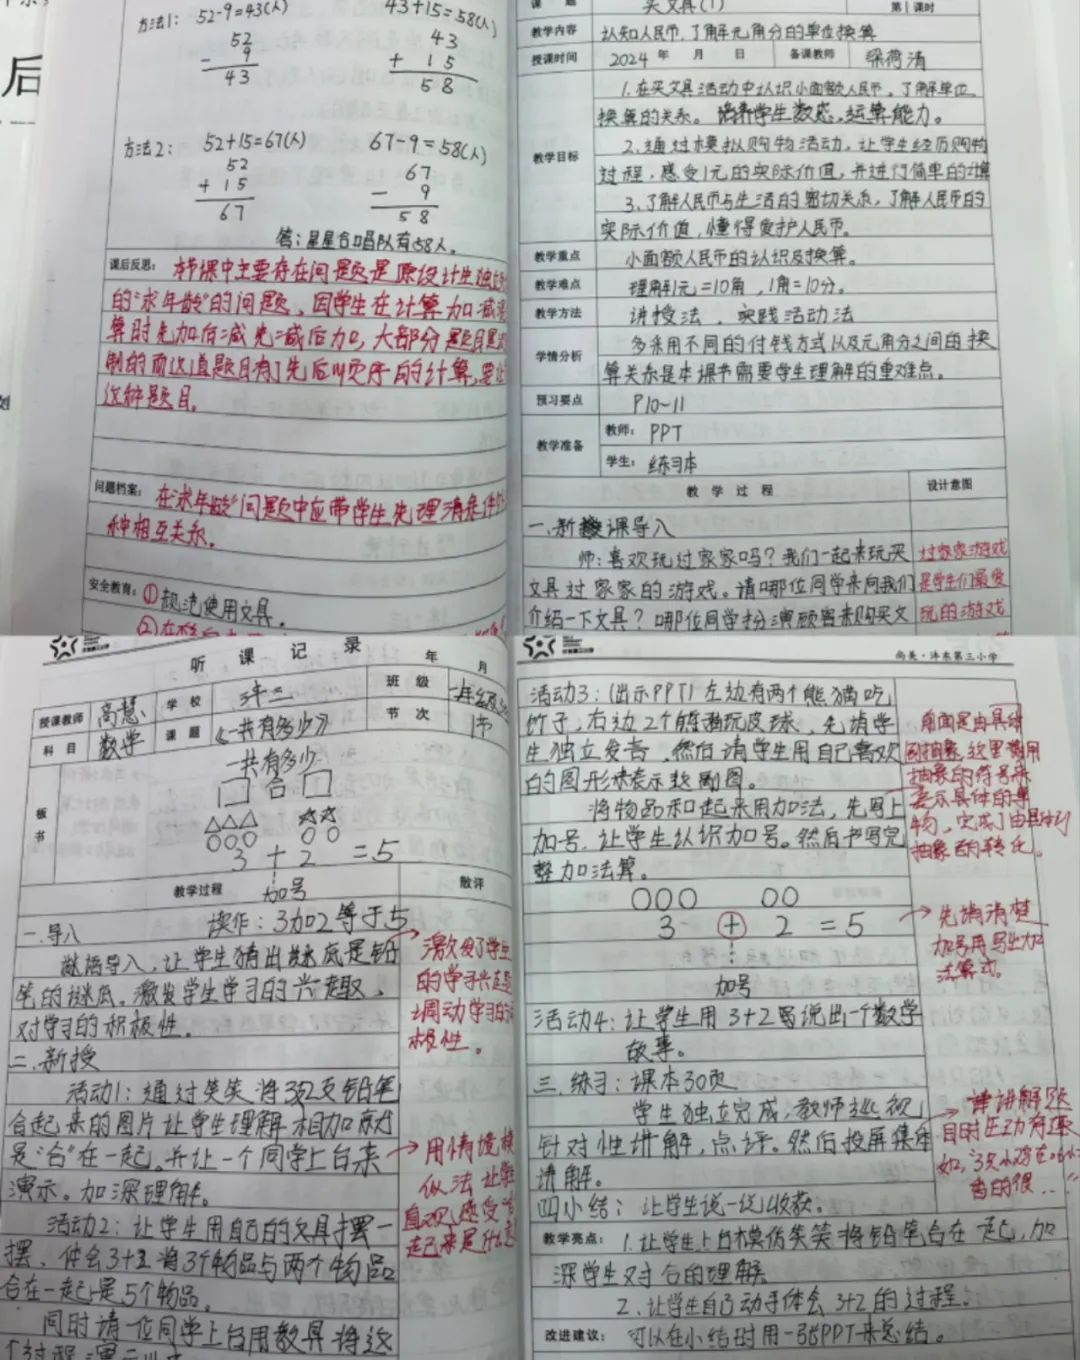 后
方法1: 52-9=43(人) 43+15=58(人)
52
- 9
43
43
+ 15
58
方法2: 52+15=67(人) 67-9=58(人)
52
+ 15
67
67
- 9
58
答:星星合唱队有58人。
课后反思: 本节课中主要存在问题是
的"求年龄"的问题,因学生在计算加减
算时先加后减先减后加,大部分题目是
制的而这道题目有了先后顺序的计算,要让
这种题目。
问题档案: 在"求年龄"问题中应带学生先理清条件
种相互关系。
安全教育: ①规范使用文具。
课 题 买文具(1) 第1课时
教学内容 认知人民币,了解元角分的单位换算
授课时间 2024 年 月 日 备课教师 梁荷清
教学目标
1.在买文具活动中认识小面额人民币,了解单位
换算的关系。培养学生数感,运算能力。
2.通过模拟购物活动,让学生经历购物
过程,感受1元的实际价值,并进行简单的计算
3.了解人民币与生活的密切关系,了解人民币的
实际价值,懂得爱护人民币。
教学重点 小面额人民币的认识及换算。
教学难点 理解1元=10角,1角=10分。
教学方法 讲授法、实践活动法
学情分析 多采用不同的付钱方式以及元角分之间的换
算关系是本课节需要学生理解的重难点。
预习要点 P10~11
教学准备 教师: PPT
学生: 练习本
教 学 过 程 设计意图
一.新课导入
师:喜欢玩过家家吗?我们一起来玩买
文具过家家的游戏。请哪位同学来向我们
介绍一下文具?哪位同学扮演顾客来购买文
过家家游戏
是学生们最爱
玩的游戏
听 课 记 录
年 月
授课教师 高慧 学校 班级
科目 数学 课题 《一共有多少》 节次 1节
板书
一共有多少
合
3 + 2 =5
加号
教学过程 散评
读作:3加2等于5
一.导入
谜语导入,让学生猜出谜底是铅
笔的谜底。激发学生学习的兴趣、
对学习的积极性。
二.新授
活动1:通过笑笑将3和2支铅笔
合起来的图片让学生理解相加就
是"合"在一起。并让一个同学上台来
演示。加深理解。
活动2:让学生用自己的文具摆一
摆,体会3+2将3个物品与两个物品
合在一起是5个物品。
同时请一位同学上台用教具将这
个过程演示出来
激发了学生
的学习兴趣
调动学习的
积极性。
用情境模
似法让学
直观感受
起来是什么
尚美·沣东第三小学
活动3:(出示PPT)左边有两个熊猫吃
竹子,右边2个熊猫玩皮球,先请学
生独立发言,然后请学生用自己喜欢
的图形来表示这副图。
将物品和起来用加法,先写上
加号,让学生认识加号。然后书写完
整加法算。
3 + 2 =5
加号
活动4:让学生用3+2写说出一个数学
故事。
三.练习:课本30页
学生独立完成,教师巡视
针对性讲解,点评。然后投屏集体
讲解。
四小结:让学生说一说收获。
教学亮点: 1.让学生上台模仿笑笑将铅笔合在一起,加
深学生对合的理解。
2.让学生自己动手体会3+2的过程。
改进建议: 可以在小结时用一张PPT来总结。
前面是由具体
到抽象,这里要用
抽象的符号来
表示具体的事
物,完成了由具体到
抽象的转化。
先讲清楚
加号再写出加
法算式。